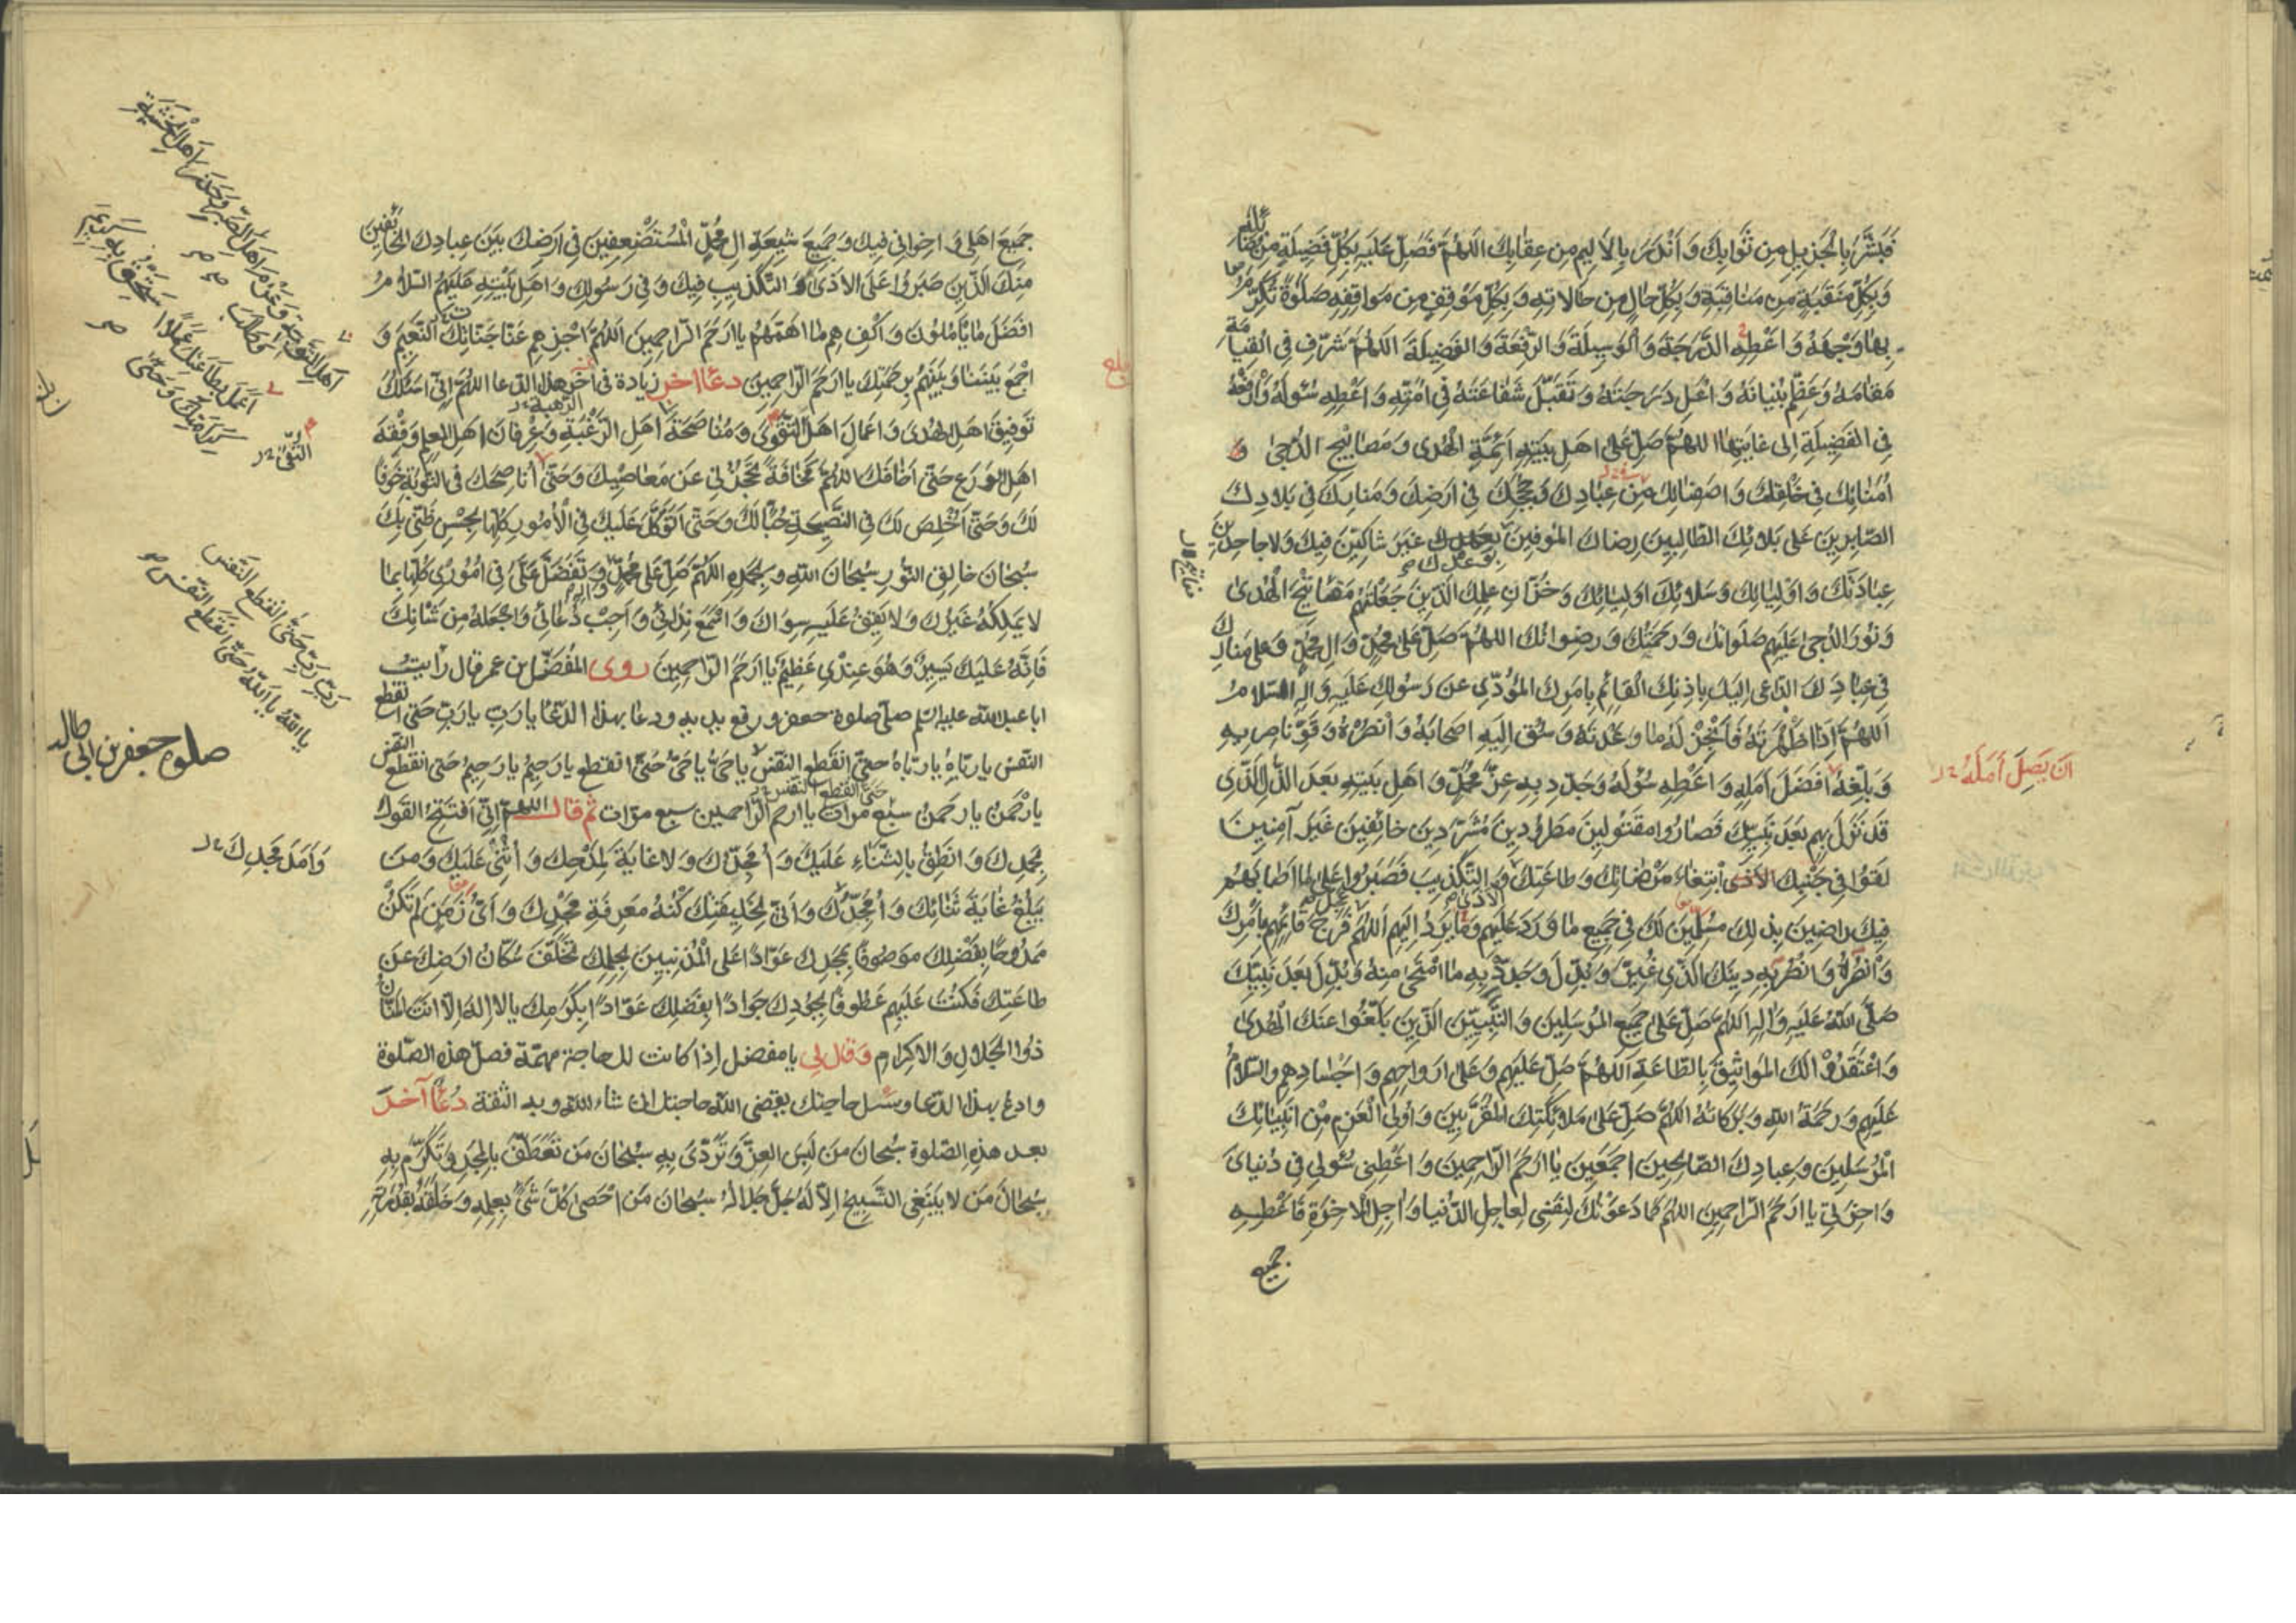 فَبَشَّرَ بِالْجَزِيلِ مِن ثَوَابِكَ وَ أَنْذَرَ بِالأَلِيمِ مِن عِقٰابِكَ اَللّٰهُمَّ فَصَلِّ عَلَيهِ بِكُلِّ فَضِيلَةٍ مِن فَضٰائِلِهِ
وَبِكُلِّ مَنْقَبَةٍ مِن مَنَاقِبِهِ وَبِكُلِّ حٰالٍ مِن حَالاتِهِ وَبِكُلِّ مَوْقِفٍ مِن مَوَاقِفِهِ صَلٰوةً تُكَرِّمُ
بِهٰا وَجْهَهُ وَ اَعْطِهِ الدَّرَجَةَ وَ الْوَسِيلَةَ وَ الرِّفْعَةَ وَ الفَضِيلَةَ اَللّٰهُمَّ شَرِّف فِي القِيٰامَةِ
مَقَامَهُ وَ عَظِّم بُنْيَانَهُ وَ اَعْلِ دَرَجَتَهُ وَ تَقَبَّل شَفَاعَتَهُ فِي اُمَّتِهِ وَ اَعْطِهِ سُؤلَهُ وَ ارْفَعْهُ
فِي الفَضِيلَةِ اِلى غَايَتِهٰا اللهُمَّ صَلِّ عَلَى اَهلِ بَيتِهِ اَئِمَّةِ الْهُدَى وَ مَصَابِيحِ الدُّجىٰ وَ
اُمَنٰائِكَ فِي خَلْقِكَ وَ اَصفِيٰائِكَ مِن عِبَادِكَ وَ حُجَجِكَ فِي اَرضِكَ وَ مَنارِكَ فِي بِلادِكَ
الصّابِرِينَ عَلَى بَلائِكَ الطّالِبِينَ رِضاكَ المُوفِينَ بِوَعْدِكَ غَيرَ شَاكِّينَ فِيكَ وَلاجاحِدِينَ
عِبَادَتَكَ وَ اَوْلِيَائِكَ وَ سَلائِلِ اَولِيَائِكَ وَ خُزّانِ عِلمِكَ الَّذِينَ جَعَلْتَهُم مَفٰاتِيحَ الْهُدىٰ
وَ نُورَ الدُّجىٰ عَلَيهِم صَلَوَاتُكَ وَ رَحمَتُكَ وَ رِضوَانُكَ اللهُمَّ صَلِّ عَلَى مُحَمَّدٍ وَ الِ مُحَمَّدٍ وَعَلى مَنَارِكَ
فِي عِبٰادِكَ الدّاعِى اِلَيكَ بِاِذنِكَ القَائِمِ بِاَمرِكَ المُؤَدِّي عَن رَسُولِكَ عَلَيهِ وَ الِهِ السَّلامُ
اَللّٰهُمَّ اِذٰا اَظْهَرتَهُ فَاَنْجِز لَهُ مٰا وَعَدتَهُ وَ سُق اِلَيهِ اَصحَابَهُ وَ انْصُرهُ وَ قَوِّ نَاصِرِيهِ
وَ بَلِّغهُ اَفضَلَ اَمَلِهِ وَ اَعْطِهِ سُؤلَهُ وَ جَدِّد بِهِ عِزَّ مُحَمَّدٍ وَ اَهلِ بَيتِهِ بَعدَ الذُّلِّ الَّذِي
اَن يَصِلَ اَمَلَهُ
قَد نَزَلَ بِهِم بَعدَ نَبِيِّكَ فَصَارُوا مَقتُولِينَ مَطرُودِينَ مُشَرَّدِينَ خائِفِينَ غَيرَ آمِنِينَ
لَقَوا فِي جَنْبِكَ الاَذَى اِبتِغاءَ مَرْضٰاتِكَ وَ طَاعَتِكَ وَ التَّكذِيبَ فَصَبَرُوا عَلَى مٰا اَصَابَهُم
فِيكَ راضِينَ بِذلِكَ مُسَلِّمِينَ لَكَ فِي جَمِيعِ ما وَرَدَ عَلَيهِم وَ مٰا يَرِدُ اِلَيهِم اَللّٰهُمَّ فَرِّج قَائِمَهُم بِاَمْرِكَ
وَ انْصُرْهُ وَ انْصُر بِهِ دِينَكَ الَّذِي غُيِّرَ وَ بُدِّلَ وَ جَدِّدْ بِهِ مَا امْتَحىٰ مِنهُ وَ بُدِّلَ بَعدَ نَبِيِّكَ
صَلَّى اللهُ عَلَيهِ وَ اٰلِهِ اللّٰهُمَّ صَلِّ عَلىٰ جَمِيعِ المُرسَلِينَ وَ النَّبِيِّينَ الَّذِينَ بَلَّغُوا عَنكَ الْهُدىٰ
وَ اعْتَقَدُوا لَكَ المَوَاثِيقَ بِالطّاعَةِ اَللّٰهُمَّ صَلِّ عَلَيهِم وَ عَلى اَروَاحِهِم وَ اَجْسٰادِهِم وَ السَّلامُ
عَلَيهِم وَ رَحمَةُ اللهِ وَ بَرَكَاتُهُ اللّٰهُمَّ صَلِّ عَلىٰ مَلائِكَتِكَ المُقَرَّبِينَ وَ اُولِى الْعَزمِ مِن اَنبِيٰائِكَ
الْمُرسَلِينَ وَ عِبَادِكَ الصّالِحِينَ اَجمَعِينَ يٰا اَرحَمَ الرّاحِمِينَ وَ اَعْطِنِي سُؤلِي فِي دُنيَاىَ
وَ اخِرَتِي يا اَرحَمَ الرّاحِمِينَ اللهُمَّ كُلَّمٰا دَعَوْتُكَ لِنَفسِي لِعاجِلِ الدُّنيا وَ اٰجِلِ الاٰخِرَةِ فَاَعْطِهِ
جميع
جَمِيعَ اَهلِي وَ اِخوَانِي فِيكَ وَ جَمِيعَ شِيعَةِ الِ مُحَمَّدٍ الْمُسْتَضعَفِينَ فِي اَرضِكَ بَينَ عِبادِكَ الخَائِفِينَ
مِنكَ الَّذِينَ صَبَرُوا عَلَى الاَذىٰ وَ التَّكذِيبِ فِيكَ وَ فِي رَسُولِكَ وَ اَهلِ بَيْتِهِ عَلَيهِمُ السَّلامُ
اَفضَلَ مٰا يَأمُلُونَ وَ اكْفِهِم مٰا اَهَمَّهُم يا اَرحَمَ الرّاحِمِينَ اَللّٰهُمَّ اجْزِهِم عَنّا جَنّاتِكَ النَّعِيمَ وَ
اجْمَع بَينَنا وَ بَينَهُم بِرَحمَتِكَ يا اَرحَمَ الرّاحِمِينَ دعٓاء اخر زيادة فى اخر هذا الدعا اللهُمَّ اِنِّي اَسئَلُكَ
تَوفِيقَ اَهلِ الهُدَى وَ اَعمَالَ اَهلِ التَّقْوىٰ وَ مُنٰاصَحَةَ اَهلِ الرَّغْبَةِ وَ عِرْفَانَ اَهلِ العِلمِ وَ فِقهَ
اَهلِ الوَرَعِ حَتّى اَخٰافَكَ اللهُمَّ مَخَافَةً تَحْجُزُنِي عَن مَعَاصِيكَ وَ حَتّىٰ اُنَاصِحَكَ فِي التَّوبَةِ خَوفًا
لَكَ وَ حَتّىٰ اُخْلِصَ لَكَ فِي النَّصِيحَةِ حُبًّا لَكَ وَ حَتّى اَتَوَكَّلَ عَلَيكَ فِي الْاُمُورِ كُلِّهٰا بِحُسْنِ ظَنّي بِكَ
سُبحَانَ خَالِقِ النُّورِ سُبحَانَ اللهِ وَ بِحَمدِهِ اَللّٰهُمَّ صَلِّ عَلى مُحَمَّدٍ وَ تَفَضَّل عَلَىَّ فِي اُمُورِي كُلِّهٰا بِمٰا
لا يَملِكُهُ غَيرُكَ وَ لا يَقِفُ عَلَيهِ سِوٰاكَ وَ اسْمَع نِدٰائِي وَ اَجِبْ دُعَائِي وَ اجْعَلهُ مِن شَأنِكَ
فَاِنَّهُ عَلَيكَ يَسِيرٌ وَ هُوَ عِندِي عَظِيمٌ يا اَرحَمَ الرّاحِمِينَ روى المُفَضَّل بن عمر قال رايت
ابا عبدالله عليه السلم صلّى صلوة جعفر و رفع يديه و دعا بهذا الدّعا يا رَبِّ يا رَبِّ حَتّى انقطع
النّفس يا رَبّاهُ يا رَبّاهُ حتّى انقطع النّفس يا حَىُّ يا حَىُّ حَتّى انقطع يا رَحِيمُ يا رَحِيمُ حَتى انقطع النفس
يا رَحْمٰنُ يا رَحمٰنُ سبع مرات يا ارحم الرّاحمين سبع مرّات ثم قال اللهم اِنّي اَفتَتِحُ القَولَ
بِحَمدِكَ وَ انطِقُ بِالثَّنٰاءِ عَلَيكَ وَ اُمَجِّدُكَ وَ لا غايَةَ لِمَدْحِكَ وَ اُثْنِي عَلَيكَ وَ مَن
يَبلُغُ غَايَةَ ثَنٰائِكَ وَ اُمَجِّدُكَ وَ اَنّى لِخَلِيقَتِكَ كُنْهُ مَعرِفَةِ مَجْدِكَ وَ اَىُّ زَمَنٍ لَم تَكُنْ
مَمدُوحًا بِفَضْلِكَ مَوصُوفًا بِمَجدِكَ عَوّادًا عَلَى الْمُذنِبِينَ بِحِلمِكَ تَخَلَّفَ سُكّانُ اَرضِكَ عَن
طاعَتِكَ فَكُنْتَ عَلَيهِم عَطُوفًا بِجُودِكَ جَوادًا بِفَضلِكَ عَوّادًا بِكَرَمِكَ يا لا اِلهَ اِلّا اَنتَ المَنّانُ
ذُو الجَلالِ وَ الاِكرامِ وَ قال لِي يا مفضل اِذا كانت لك حاجة مهمّة فصلّ هذه الصّلوة
وادع بهذا الدّعا و سَل حاجتك يقضى الله حاجتك ان شاء الله و به الثقة دُعآء آخر
بعد هذه الصّلوة سُبحانَ مَن لَبِسَ العِزَّ وَ تَرَدّى بِهِ سُبْحانَ مَن تَعَطَّفَ بِالمَجدِ وَ تَكَرَّمَ بِهِ
سُبْحانَ مَن لا يَنبَغِي التَّسبِيحُ اِلّا لَهُ جَلَّ جَلالُهُ سُبحَانَ مَن اَحْصى كُلَّ شَىءٍ بِعِلمِهِ وَ خَلَقَهُ بِقُدرَتِهِ
رَبِّ رَبِّ حَتّى انقَطع النّفس
يا اَللّٰهُ يا اَللّٰهُ حَتّى انقَطَع النّفس
صلوة جعفر بن ابى طالب
وَ اَمَدَ مَجدِكَ
بلغ